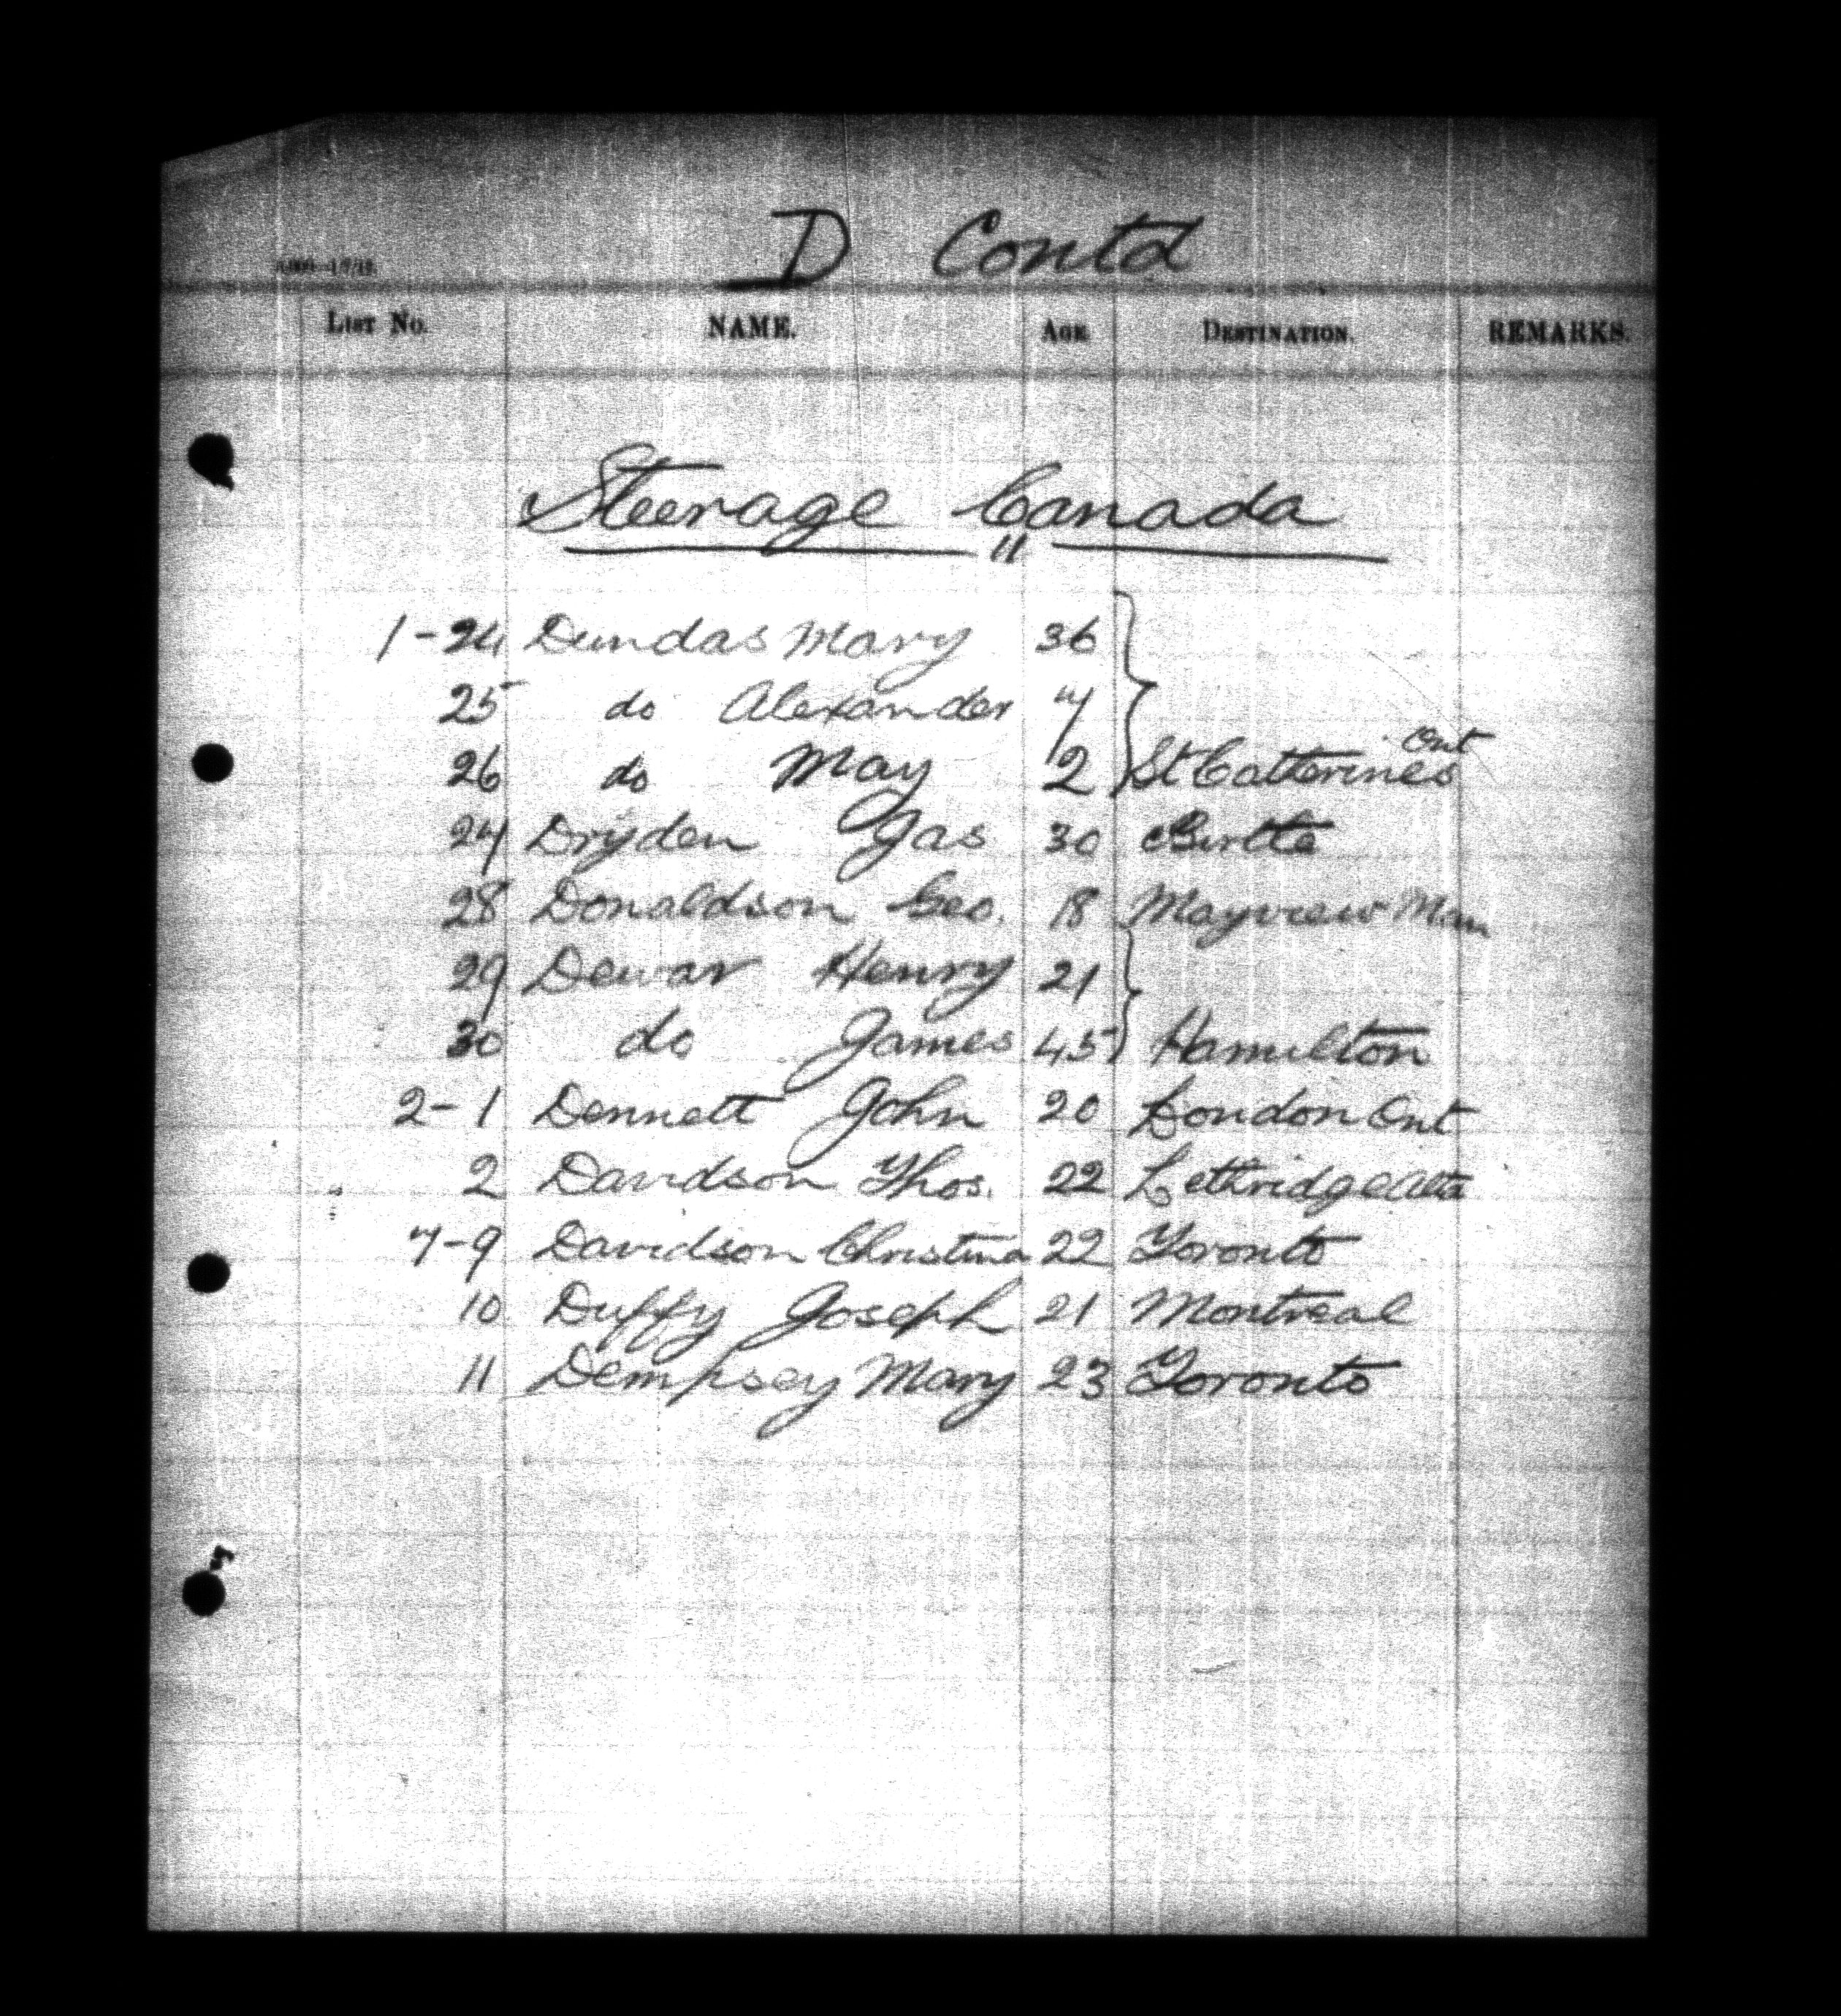 D Contd
List No. NAME. Age Destination. REMARKS.
Steerage Canada
1-24 Dundas Mary 36
25 do Alexander 7
26 do May 2 St Catherines Ont
27 Dryden Jas 30 Birtle
28 Donaldson Geo. 18 Mayview Man
29 Dewar Henry 21
30 do James 45 Hamilton
2-1 Dennett John 20 London Ont
2 Davidson Thos. 22 Lethridge Alta
7-9 Davidson Christina 22 Toronto
10 Duffy Joseph 21 Montreal
11 Dempsey Mary 23 Toronto